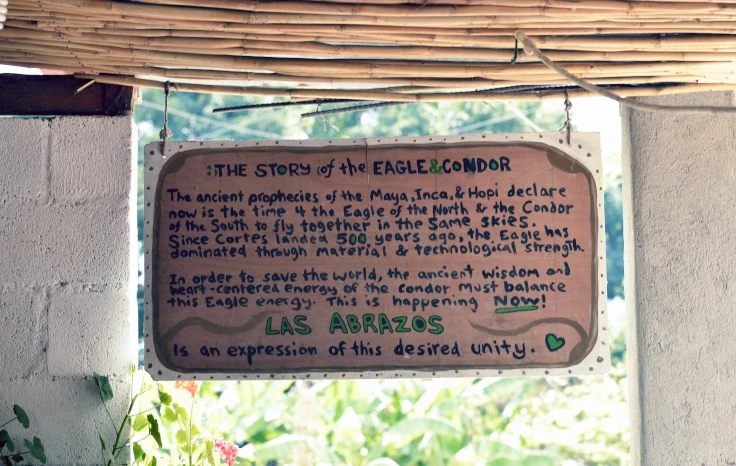 :THE STORY of the EAGLE&CONDOR
The ancient prophecies of the Maya, Inca, & Hopi declare
now is the time 4 the Eagle of the North & the Condor
of the South to fly together in the Same skies.
Since Cortes landed 500 years ago, the Eagle has
dominated through material & technological strength.
In order to save the world, the ancient wisdom and
heart-centered energy of the condor must balance
this Eagle energy. This is happening NOW!
LAS ABRAZOS
Is an expression of this desired unity.